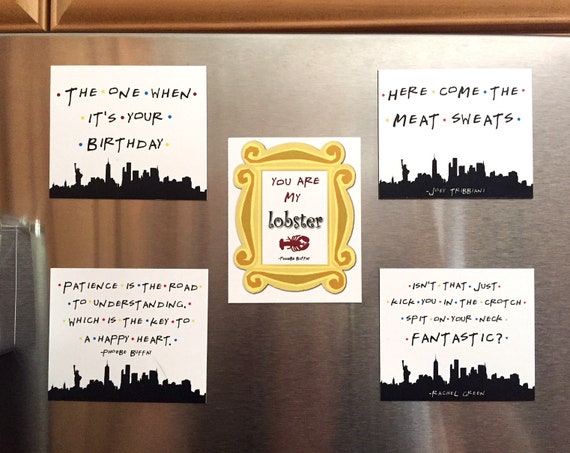 THE ONE WHEN
IT'S YOUR
BIRTHDAY
HERE COME THE
MEAT SWEATS
-JOEY TRIBBIANI
YOU ARE
MY
lobster
-PHOEBE BUFFAY
PATIENCE IS THE ROAD
TO UNDERSTANDING,
WHICH IS THE KEY TO
A HAPPY HEART.
-PHOEBE BUFFAY
ISN'T THAT JUST
KICK YOU IN THE CROTCH
SPIT ON YOUR NECK
FANTASTIC?
-RACHEL GREEN